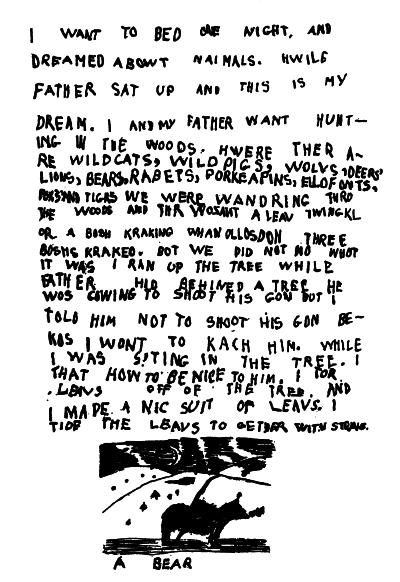 I WANT TO BED ONE NIGHT, AND
DREAMED ABOWT NAIMALS. HWILE
FATHER SAT UP AND THIS IS MY
DREAM. I AND MY FATHER WANT HUNT-
ING IN THE WOODS. HWERE THER A-
RE WILDCATS, WILD PIGS, WOLVS, DEERS
LIONS, BEARS, RABETS, PORKEAPINS, ELLOFONTS,
AND TIGRS WE WERE WANDRING THRO
THE WOODS AND THR WOSANT A LEAV TWINGKL
OR A BOSH KRAKING WHAN OLLOSODON THREE
BOSHS KRAKED. BOT WE DID NOT NO WHOT
IT WAS I RAN UP THE TREE WHILE
FATHER HID BEHINED A TREE HE
WOS GOWING TO SHOOT HIS GON BUT I
TOLD HIM NOT TO SHOOT HIS GON BE-
KOS I WONT TO KACH HIM. WHILE
I WAS SITING IN THE TREE. I
THAT HOW TO BE NICE TO HIM. I TOR
LEAVS OFF OF THE TREE. AND
I MADE A NIC SUIT OF LEAVS. I
TIDE THE LEAVS TO GETHER WITH STRING.
A BEAR